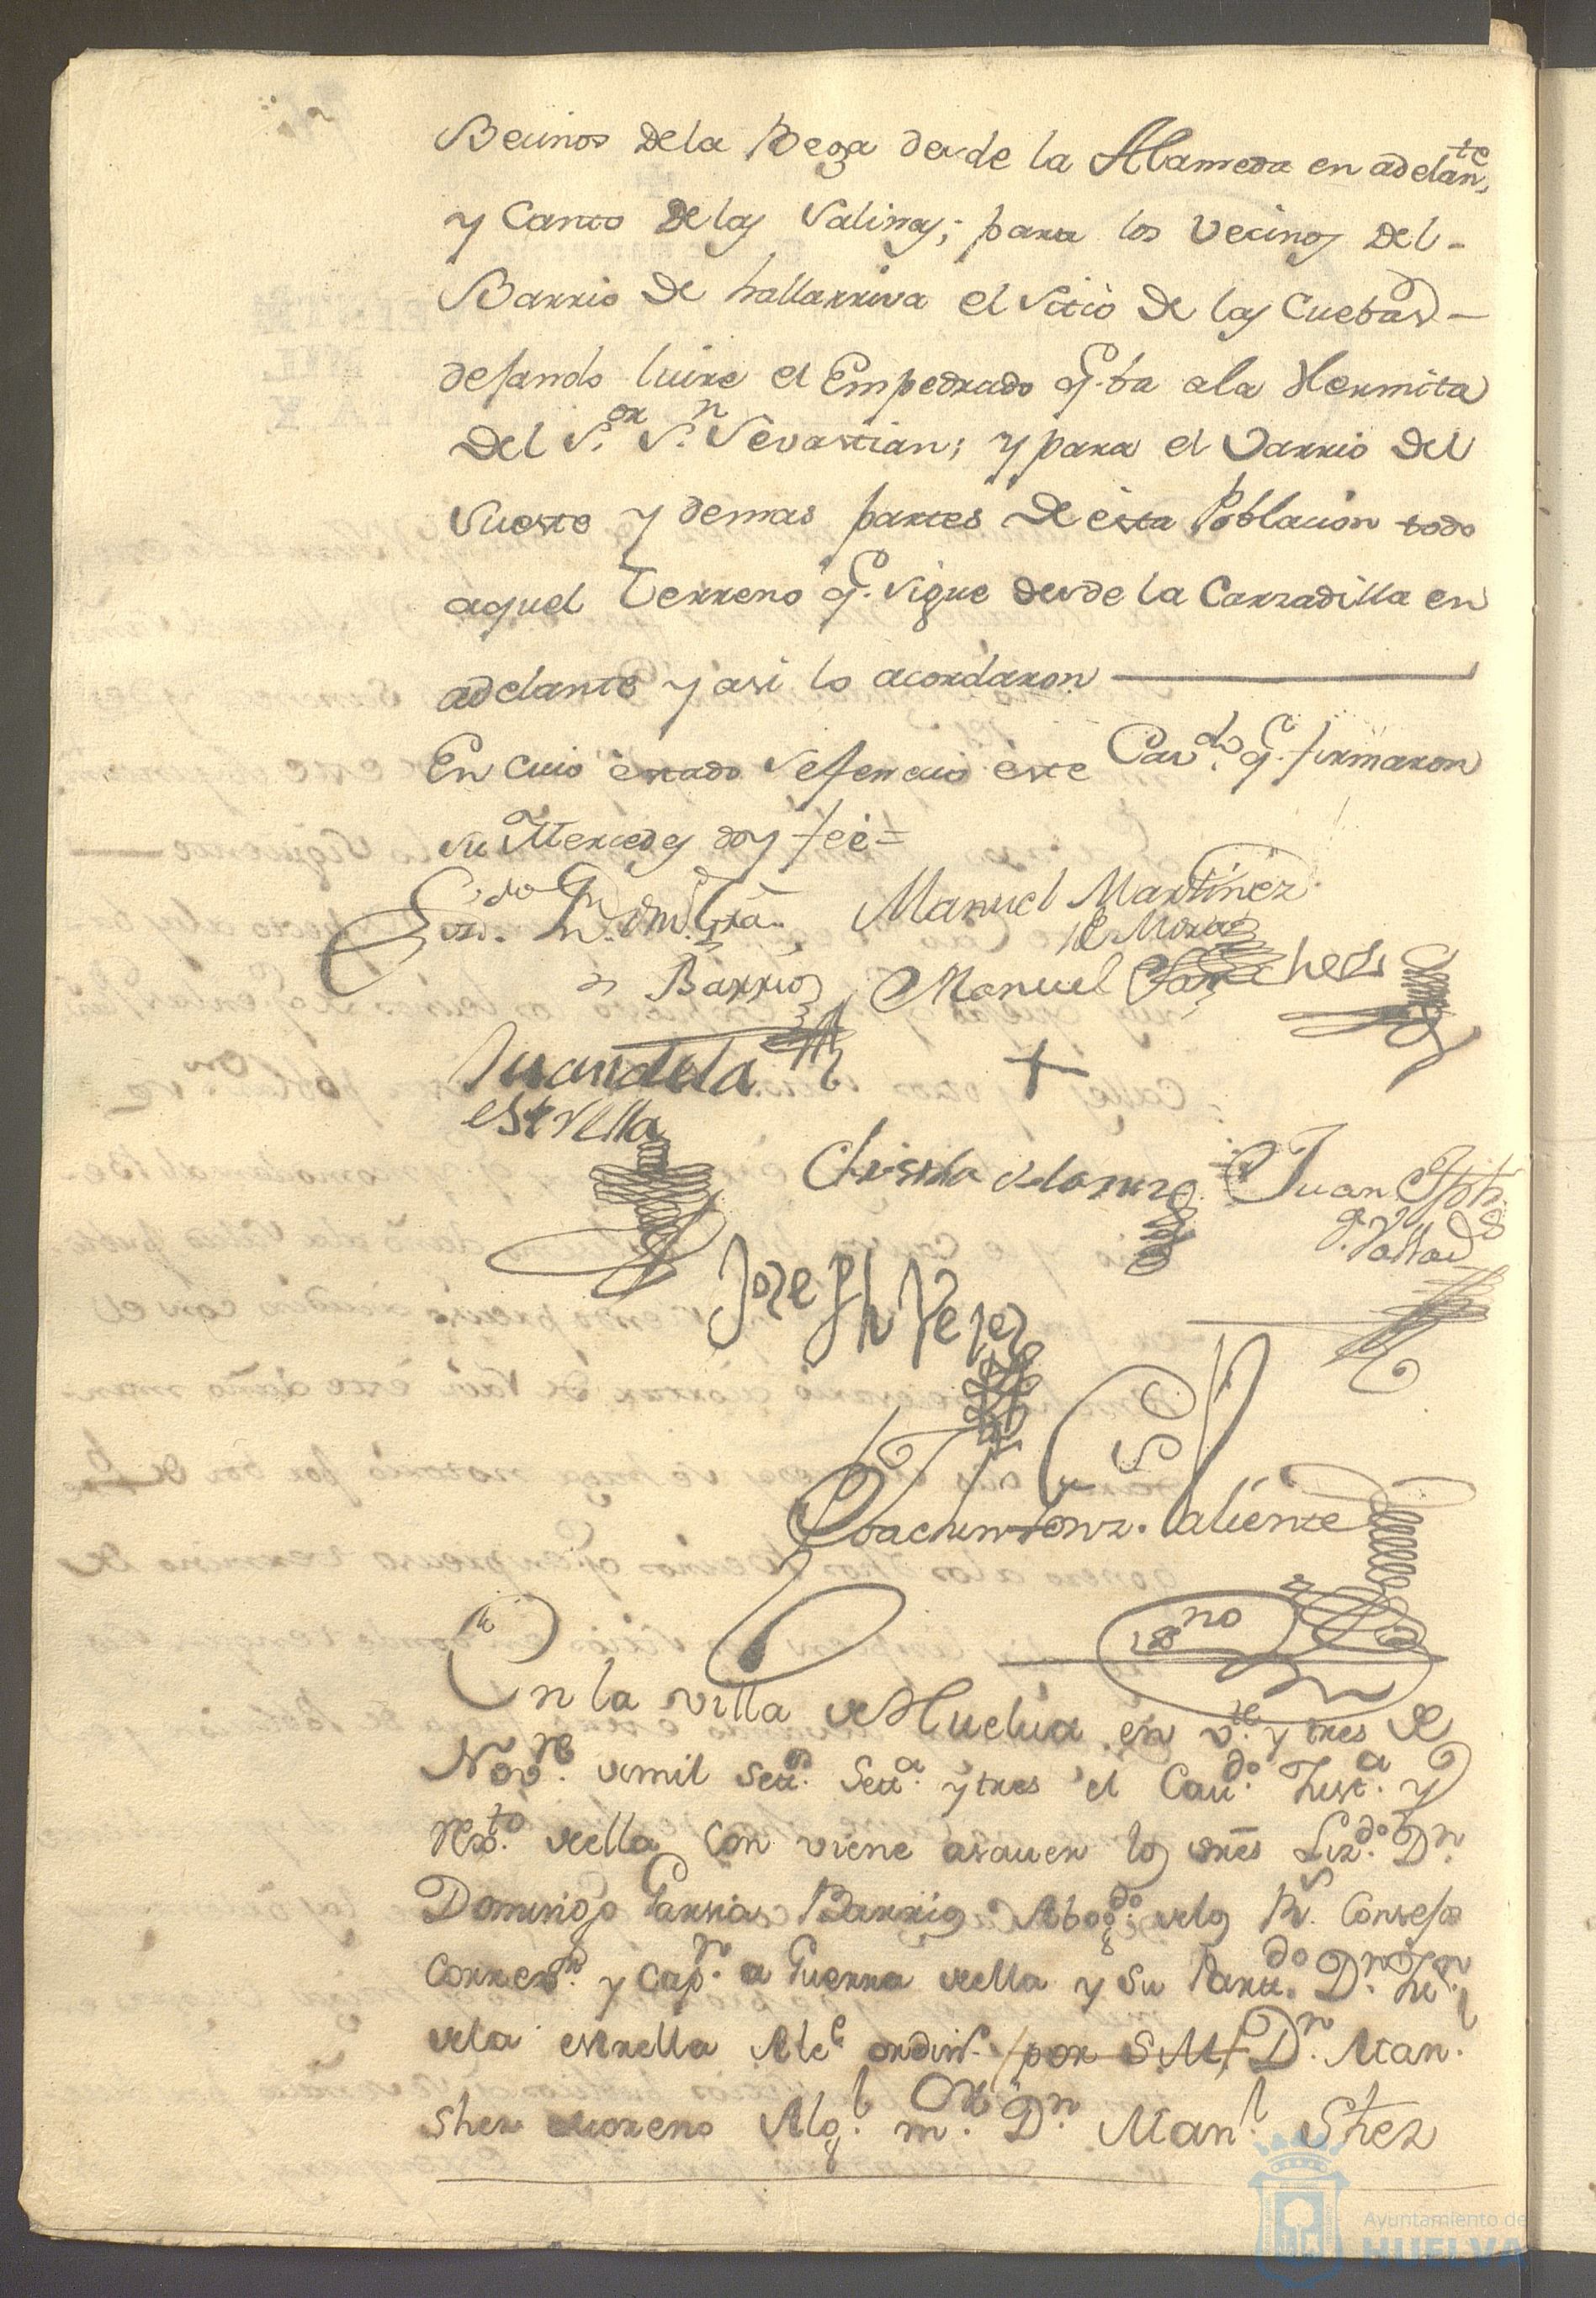 Becinos dela Bega desde la Alameda en adelan.te
y Canto delas Salinas; para los Vecinos del-
Barrio de hallarriva el Sitio de las Cuebas -
dejando luire el Empedrado q.e ba ala Hermita
del S.or S.n Sevastian; y para el Varrio del
Sueste y demas partes de ésta Poblacion todo
aquel Terreno q.e sigue desde la Carzadilla en
adelante y asi lo acordaron
En cuio estado se fencio este Cav.do q.e firmaron
su Mercedes doy feè=
Liz.do D.n Dom.o Grã.
Manuel Martinez
de Mora
Barrios
Manuel Sanchez
Juan de la
estrella
+
Juan Jph.
Joseph Vejer
Joachin Gonz. Saliente
ss.no
En la villa de Huelua en v.te y tres de
Nov.re demil set.s Set.a y tres el Cau.do Just.a y
Rex.to della con viene asauer los sres Liz.do D.n
Domingo Garsia Barrios Abog.do delos R.s Consejos
Correx.or y Cap.n a Guerra della y Su Part.do D.n Ju.n
dela estrella Alc.e ordin.o /por S.M/ D.n Man.l
Shez Moreno Alg.l m.or D.n Man.l Shez
Ayuntamiento de
HUELVA